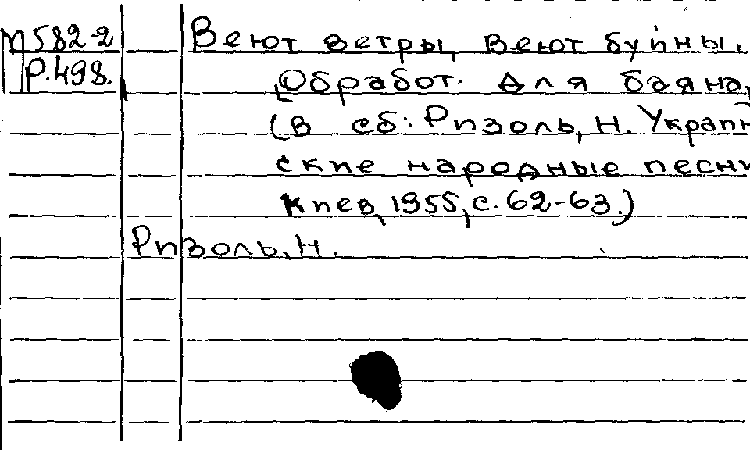 м582-2
Р.498.
Веют ветры, веют буйны.
Обработ. для баяна,
(в сб: Ризоль, Н. Украин
ские народные песни
Киев, 1955, с. 62-63.)
Ризоль, Н.